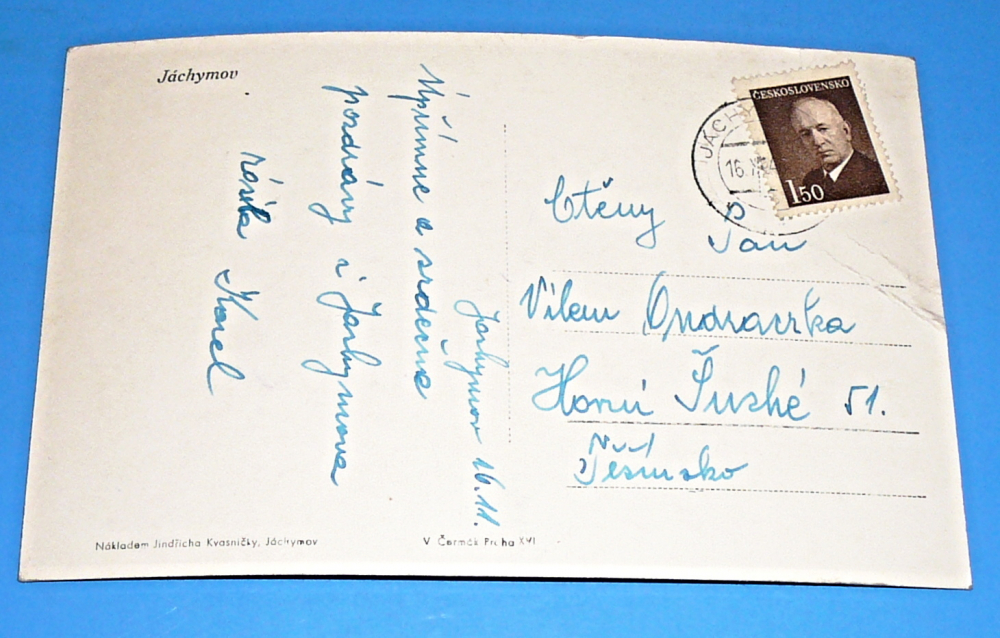 Jáchymov
Jáchymov 16.11.
Úpřímne a srdečne
pozdravy z Jáchymova
Karel
ČESKOSLOVENSKO
1 50
JÁCHY
16.X
Ctěný
Pan
Vilem Ondraczka
Horní Šuché 51.
Těšínsko
Nákladem Jindřicha Kvasničky, Jáchymov
V. Čermák Praha XVI